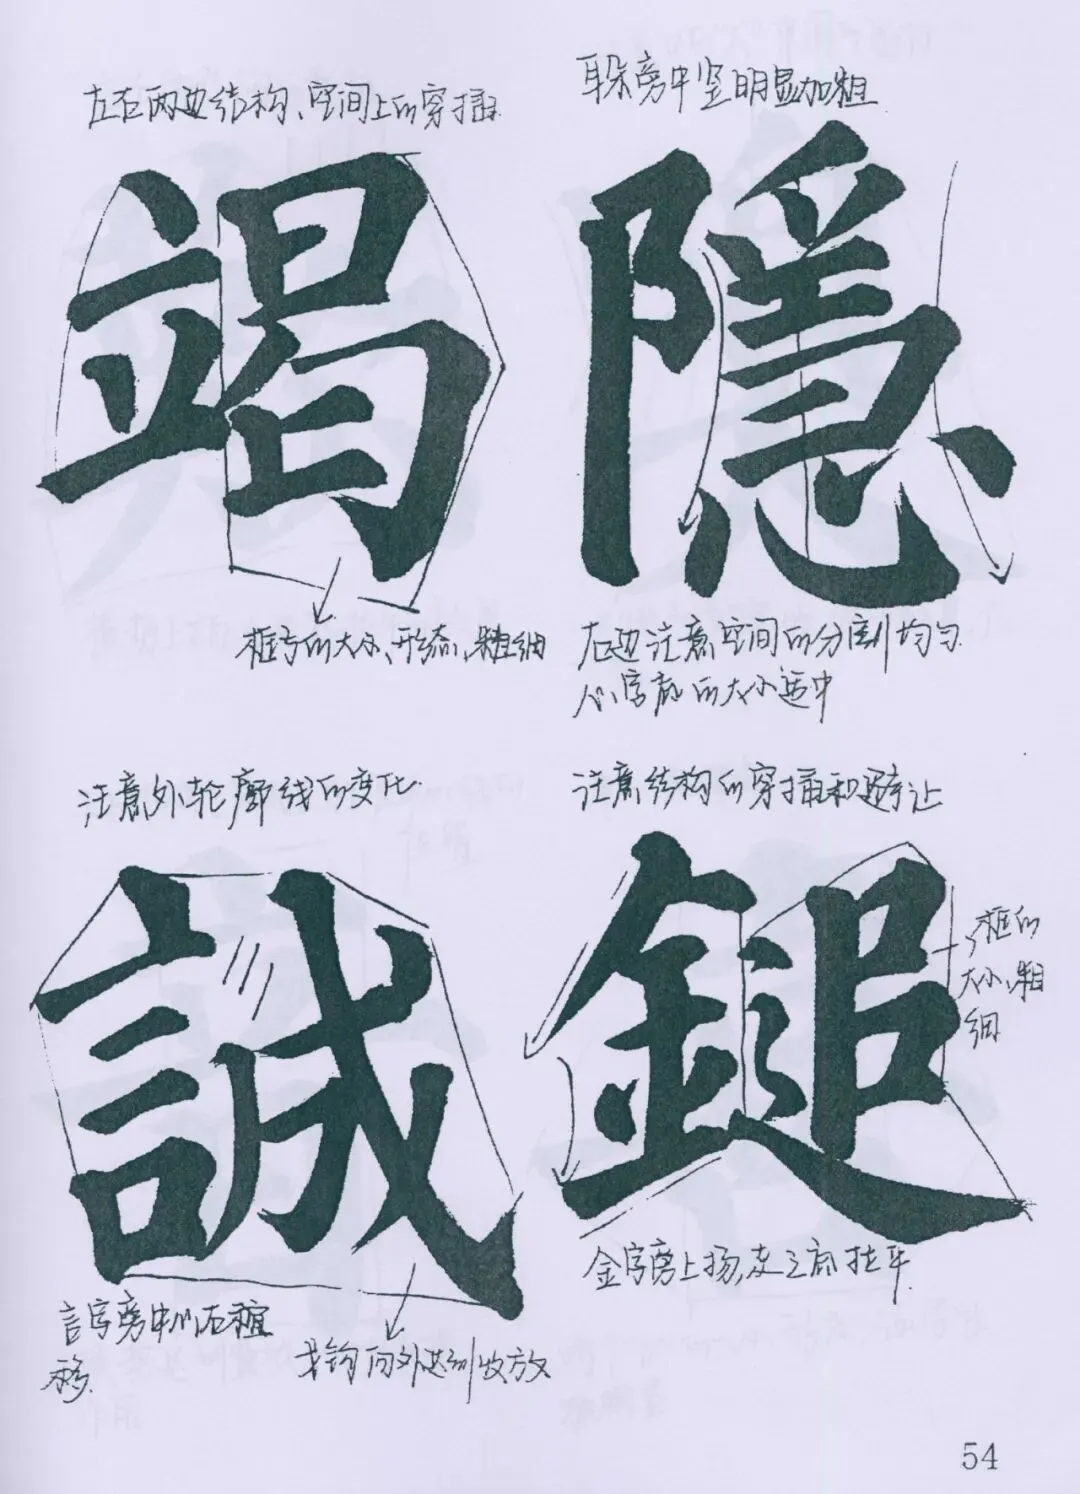 左右两边结构、空间上的穿插
竭
框与的大小、形态、粗细
耳朵旁中竖明显加粗
隱
右边注意空间的分割均匀
心字底的大小适中
注意外轮廓线的变化
誠
言字旁中心右
移
钩向外达到收放
注意结构的穿插和避让
鎚
框的
大小、粗
细
金字旁上扬,走之底拉平
54